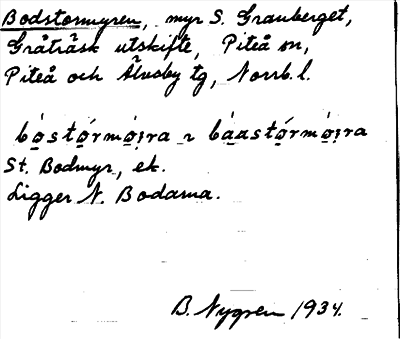 Bodstormyren, myr S. Granberget,
Gråträsk utskifte, Piteå sn,
Piteå och Älvsby tg, Norrb. l.
St. Bodmyr, ek.
Ligger N. Bodarna.
B. Nygren 1934.